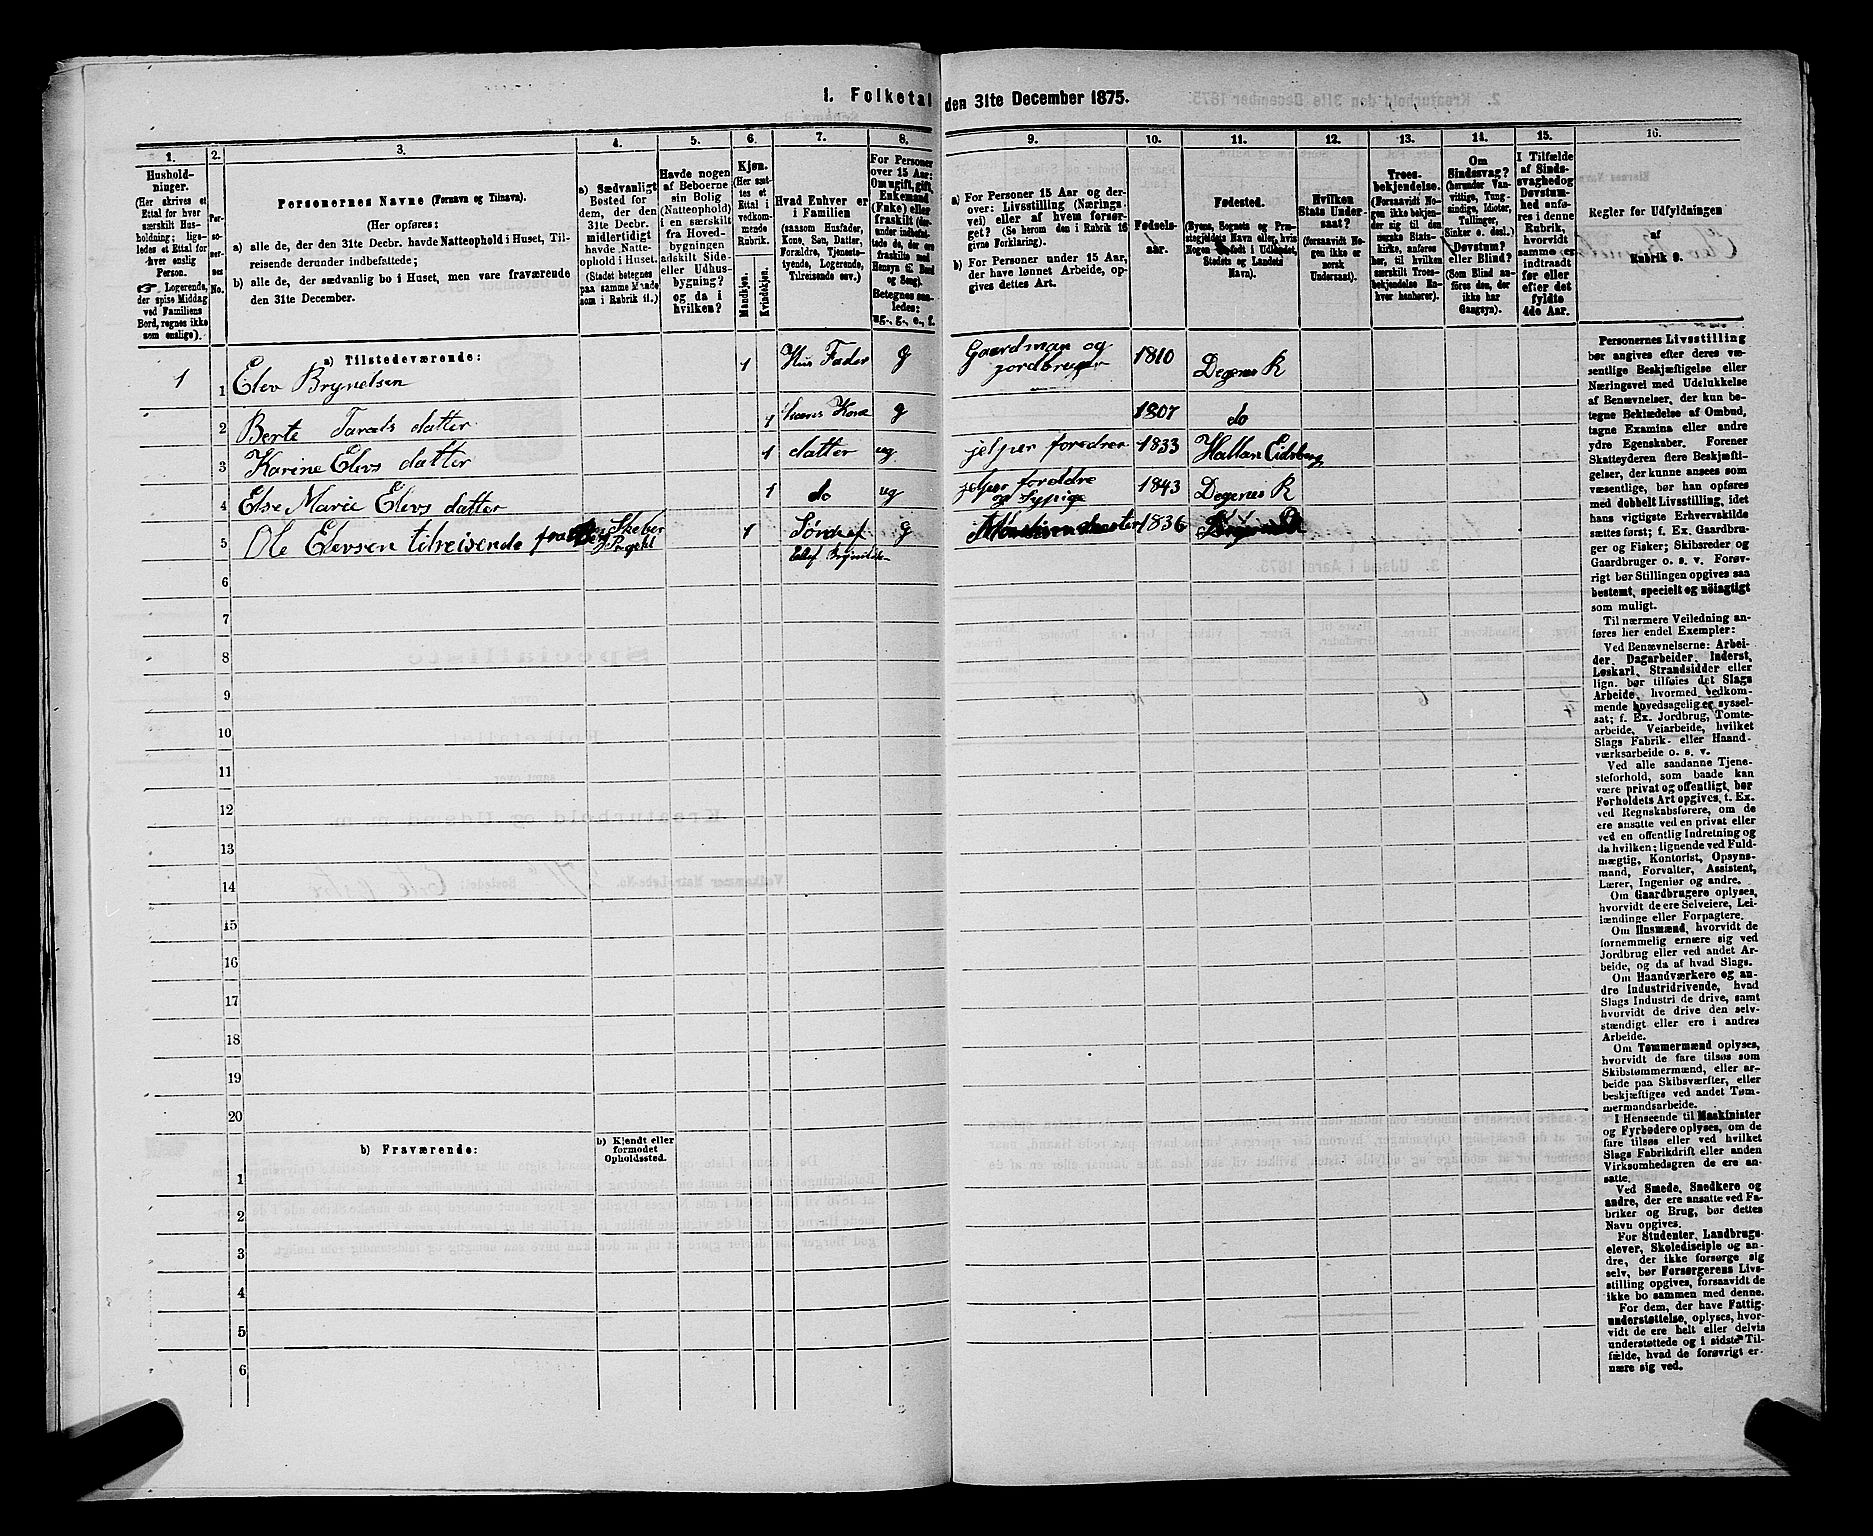 1. Folketal den 31te December 1875.
1.
2.
3.
4.
5.
6.
7.
8.
9.
10.
11.
12.
13.
14.
15.
16.
Husholdninger.
(Her skrives et
Ettal for hver
særskilt Husholdning;
ligeledes et Ettal for
hver enslig
Person.
Logerende,
der spise Middag
ved Familiens
Bord, regnes ikke
som enslige).
Personernes No.
Personernes Navne (Fornavn og Tilnavn).
(Her opføres:
a) alle de, der den 31te Decbr. havde Natteophold i Huset, Tilreisende derunder indbefattede;
b) alle de, der sædvanlig bo i Huset, men vare fraværende
den 31te December.
a) Sædvanligt
Bosted for
dem, der den
31te Decbr.
midlertidigt
havde Natteophold i Huset.
(Stedet betegnes
paa samme Maade
som i Rubrik 11.)
Havde nogen
af Beboerne
sin Bolig
(Natteophold)
i en særskilt
fra Hovedbygningen
adskilt Side- eller Udhusbygning?
og da i
hvilken?
Kjøn.
(Her sættes et
Ettal i
vedkommende
Rubrik.
Mandkjøn.
Kvindekjøn.
Hvad Enhver er
i Familien
(saasom Husfader,
Kone, Søn, Datter,
Forældre, Tjenestetyende, Logerende,
Tilreisende osv.)
For Personer
over 15 Aar:
Om ugift, gift,
Enkemand
(Enke) eller
fraskilt
Betegnes saaledes:
ug., g., e., f.
a) For Personer 15 Aar og derover: Livsstilling (Næringsvei) eller af hvem forsørget? (Se herom den i Rubrik 16
givne Forklaring).
b) For Personer under 15 Aar,
der have lønnet Arbeide, opgives dettes Art.
Fødselsaar.
Fødested.
(Byens, Sognets og Præstegjeldets Navn eller, hvis
Nogen er født i Udlandet,
Stedets og Landets
Navn).
Hvilken
Stats Undersaat?
(forsaavidt Nogen ikke er
norsk
Undersaat).
Troesbekjendelse.
(Forsaavidt Nogen ikke bekjender sig til den
norske Statskirke, anføres
her, til hvilken
særskilt Troesbekjendelse Enhver henhører).
Om
Sindssvag?
(herunder Vanvittige, Tungsindige, Idioter,
Tullinger,
Sinker o. desl.)
Døvstum?
eller Blind?
(Som Blind anføres den, der
ikke har
Gangsyn).
I Tilfælde
af Sindssvaghed og
Døvstumhed anføres i denne
Rubrik,
hvorvidt
samme er
indtraadt
før eller
efter det
fyldte
4de Aar.
Regler for Udfyldningen
af
Rubrik 9.
a) Tilstedeværende:
1 1 Elev Brynelsen 1 Hus Fader g Gaardman og jordbruger 1810 Degenes R
2 Berte datter 1 hans Kone g 1807 do
3 Karine Elevs datter 1 datter ug jelper foredrer 1833 Hallan Eidsberg
4 Else Marie Elevs datter 1 do ug jelper foroldre og Sypige 1843 Degenes R
5 Ole Elevsen tilreisende fra 1 Sönd ef g 1836
6
7
8
9
10
11
12
13
14
15
16
17
18
19
20
b) Fraværende:
b) Kjendt eller
formodet
Opholdssted.
1
2
3
4
5
6
Personernes Livsstilling
bør angives efter deres væsentlige Beskjæftigelse eller
Næringsvei med Udelukkelse
af Benævnelser, der kun betegne Beklædelse af Ombud,
tagne Examina eller andre
ydre Egenskaber. Forener
Skatteyderen flere Beskjæftigelser, der kunne ansees som
væsentlige, bør han opføres
med dobbelt Livsstilling, idet
hans vigtigste Erhvervskilde
sættes først; f. Ex. Gaardbruger og Fisker; Skibsreder og
Gaardbruger o. s. v. Forøvrigt bør Stillingen opgives saa
bestemt, specielt og nöiagtigt
som muligt.
Til nærmere Veiledning anføres her endel Exempler:
Ved Benævnelserne: Arbeider, Dagarbeider, Inderst,
Løskarl, Strandsidder eller
lign. bør tilføies det Slags
Arbeide, hvormed vedkommende hovedsagelig er sysselsat; f. Ex. Jordbrug, Tomtearbeide, Veiarbeide, hvilket
Slags Fabrik- eller Haandværksarbeide o. s. v.
Ved alle saadanne Tjenesteforhold, som baade kan
være privat og offentligt, bør
Forholdets Art opgives, f. Ex.
ved Regnskabsførere, om de
ere ansatte ved en privat eller
ved en offentlig Indretning og
da hvilken; lignende ved Fuldmægtig, Kontorist, Opsynsmand, Forvalter, Assistent,
Lærer, Ingeniør og andre.
Om Gaardbrugere oplyses,
hvorvidt de ere Selveiere, Leilændinge eller Forpagtere.
Om Husmænd, hvorvidt de
fornemmelig ernære sig ved
Jordbrug eller ved andet Arbeide, og da af hvad Slags.
Om Haandværkere og andre Industridrivende, hvad
Slags Industri de drive, samt
hvorvidt de drive den selvstændigt eller ere i andres
Arbeide.
Om Tømmermænd oplyses,
hvorvidt de fare tilsøs som
Skibstømmermænd, eller arbeide paa Skibsværfter, eller
beskjæftiges ved andet Tømmermandsarbeide.
I Henseende til Maskinister
og Fyrbødere oplyses, om de
fare tilsøs eller ved hvilket
Slags Fabrikdrift eller anden
Virksomhedsgren de ere ansatte.
Ved Smede, Snedkere og
andre, der ere ansatte ved Fabriker og Brug, bør dettes
Navn opgives.
For Studenter, Landbrugselever, Skoledisciple og andre, der ikke forsørge sig
selv, bør Forsørgerens Livsstilling opgives, forsaavidt de
ikke bo sammen med denne.
For dem, der have Fattigunderstøttelse, oplyses, hvorvidt de ere helt eller delvis
understøttede og i sidste Tilfælde, hvad de forøvrigt ernære sig ved.